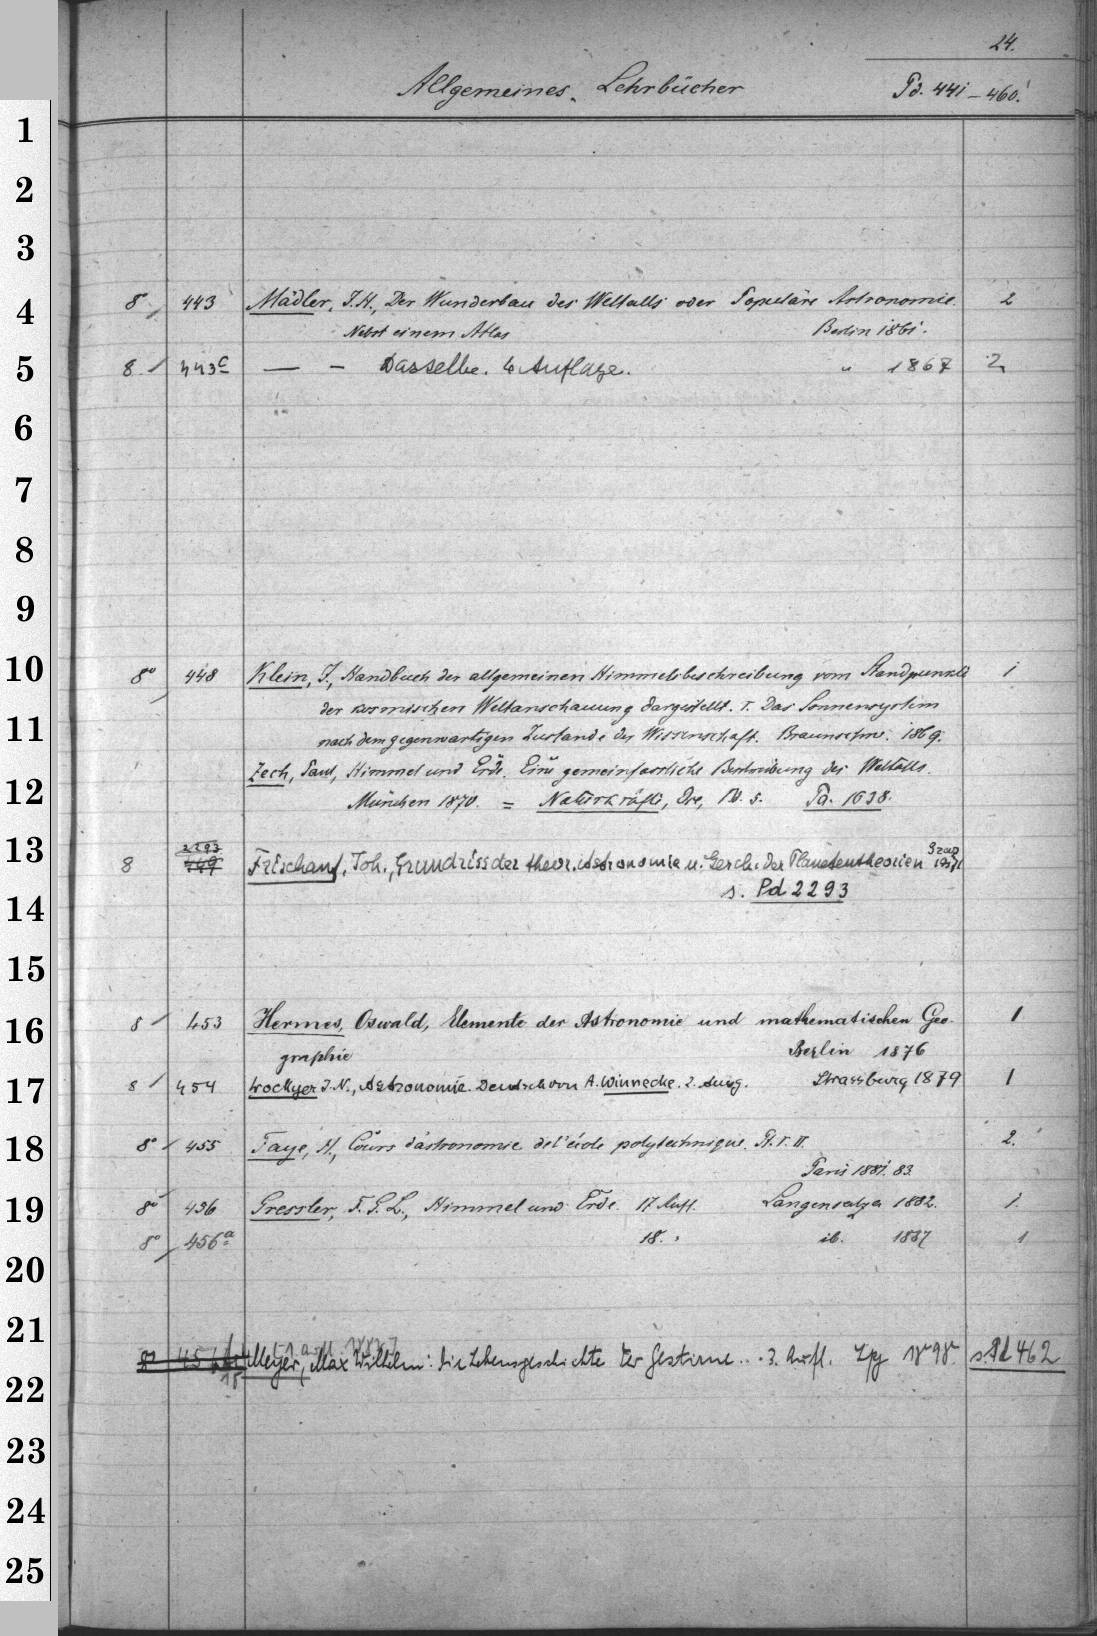 24.
Allgemeines. Lehrbücher Pd. 441-460.
1
2
3
4 8° 443 Mädler, J. H., Der Wunderbau des Weltalls oder Populäre Astronomie. 2
Nebst einem Atlas Berlin 1861.
5 8. 443c — – Dasselbe. 6 Auflage. " 1867 2
6
7
8
9
10 8° 448 Klein, J., Handbuch der allgemeinen Himmelsbeschreibung vom Standpunkte 1
der kosmischen Weltanschauung dargestellt. I. Das Sonnensystem
11 nach dem gegenwärtigen Zustande der Wissenschaft. Braunschw. 1869.
Zech, Paul, Himmel und Erde. Eine gemeinfassliche Beschreibung des Weltalls.
12 München 1870. = Naturkräfte, Die, Bd. 5. Pa. 1638.
13 2293
8 449 Frischauf, Joh., Grundriss der theor. Astronomie u. Gesch. der Planetentheorien Graz 1871
s. Pd 2293
14
15
16 8 453 Hermes, Oswald, Elemente der Astronomie und mathematischen Geo- 1
graphie Berlin 1876
17 8 454 Lockyer J. N., Astronomie. Deutsch von A. Winnecke. 2. Ausg. Strassburg 1879 1
18 8° 455 Faye, H., Cours d'astronomie de l'école polytechnique. Pt. I. II. 2.
Paris 1881. 83.
19 8° 456 Gressler, F. G. L., Himmel und Erde. 17. Aufl. Langensalza 1882. 1.
8° 456a 18. " ib. 1887 1
20
21
8° Meyer, Max Wilhelm: Die Lebensgeschichte der Gestirne... 3. Aufl. Lpz 1898. s. Pd 462
22
23
24
25